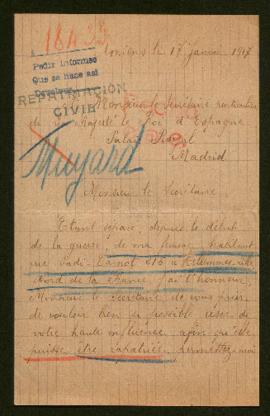 18433
le 17 Janvier 1917
Pedir informes
Que se hace así
REPATRIACIÓN
CIVIL
Monsieur le Secrétaire particulier
de sa Majesté le Roi d'Espagne
Palais Royal
Madrid
Monsieur le Secrétaire
Etant séparé, depuis le début
de la guerre, de ma femme habitant
rue Sadi-Carnot
Nord de la France j'ai l'honneur,
Monsieur le Secrétaire de vous prier
de vouloir bien si possible user de
votre haute influence afin qu'elle
puisse être rapatriée, permettez moi